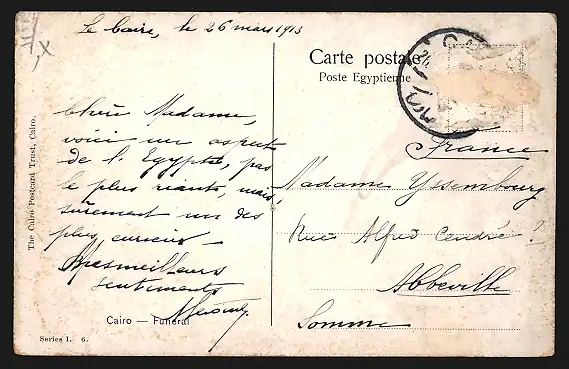 Le Caire, le 26 mars 1913
Carte postale
Poste Egyptienne
Chère Madame,
voici un aspect
de l'Egypte, pas
le plus riant, mais
sûrement un des
plus curieux —
Mes meilleurs
sentiments
France
Madame Yssembourg
Rue Alfred Cendré ?
Abbeville
Somme
Cairo — Funeral
Series I. 6.
The Cairo Postcard Trust, Cairo.